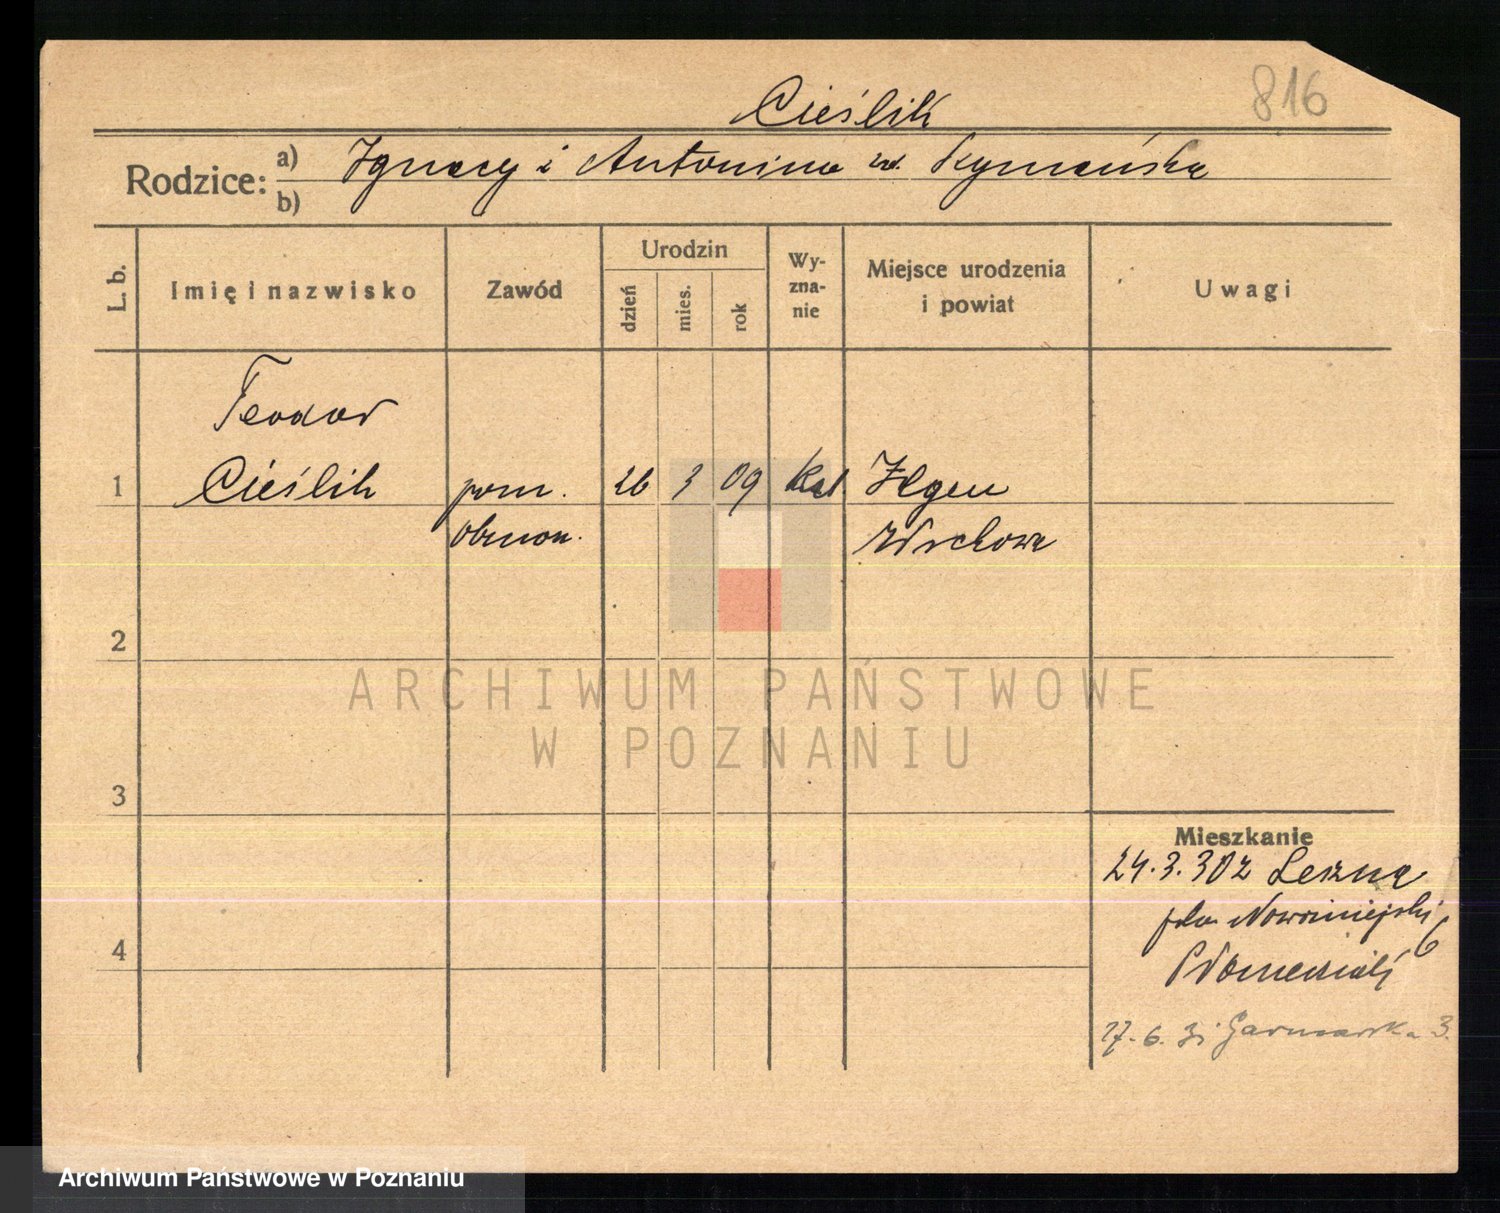 816
Cieślik
Rodzice: a) Ignacy i Antonina
b)
L. b.
Imię i nazwisko
Zawód
Urodzin
dzień
mies.
rok
Wy-
zna-
nie
Miejsce urodzenia
i powiat
Uwagi
Teodor
1 Cieślik pom. 26 3 09 kat. Ilgen
Wschowa
2
3
4
Mieszkanie
24.3.30 z Leszna
6
27.6.31 Garncarska 3.
ARCHIWUM PAŃSTWOWE
W POZNANIU
Archiwum Państwowe w Poznaniu